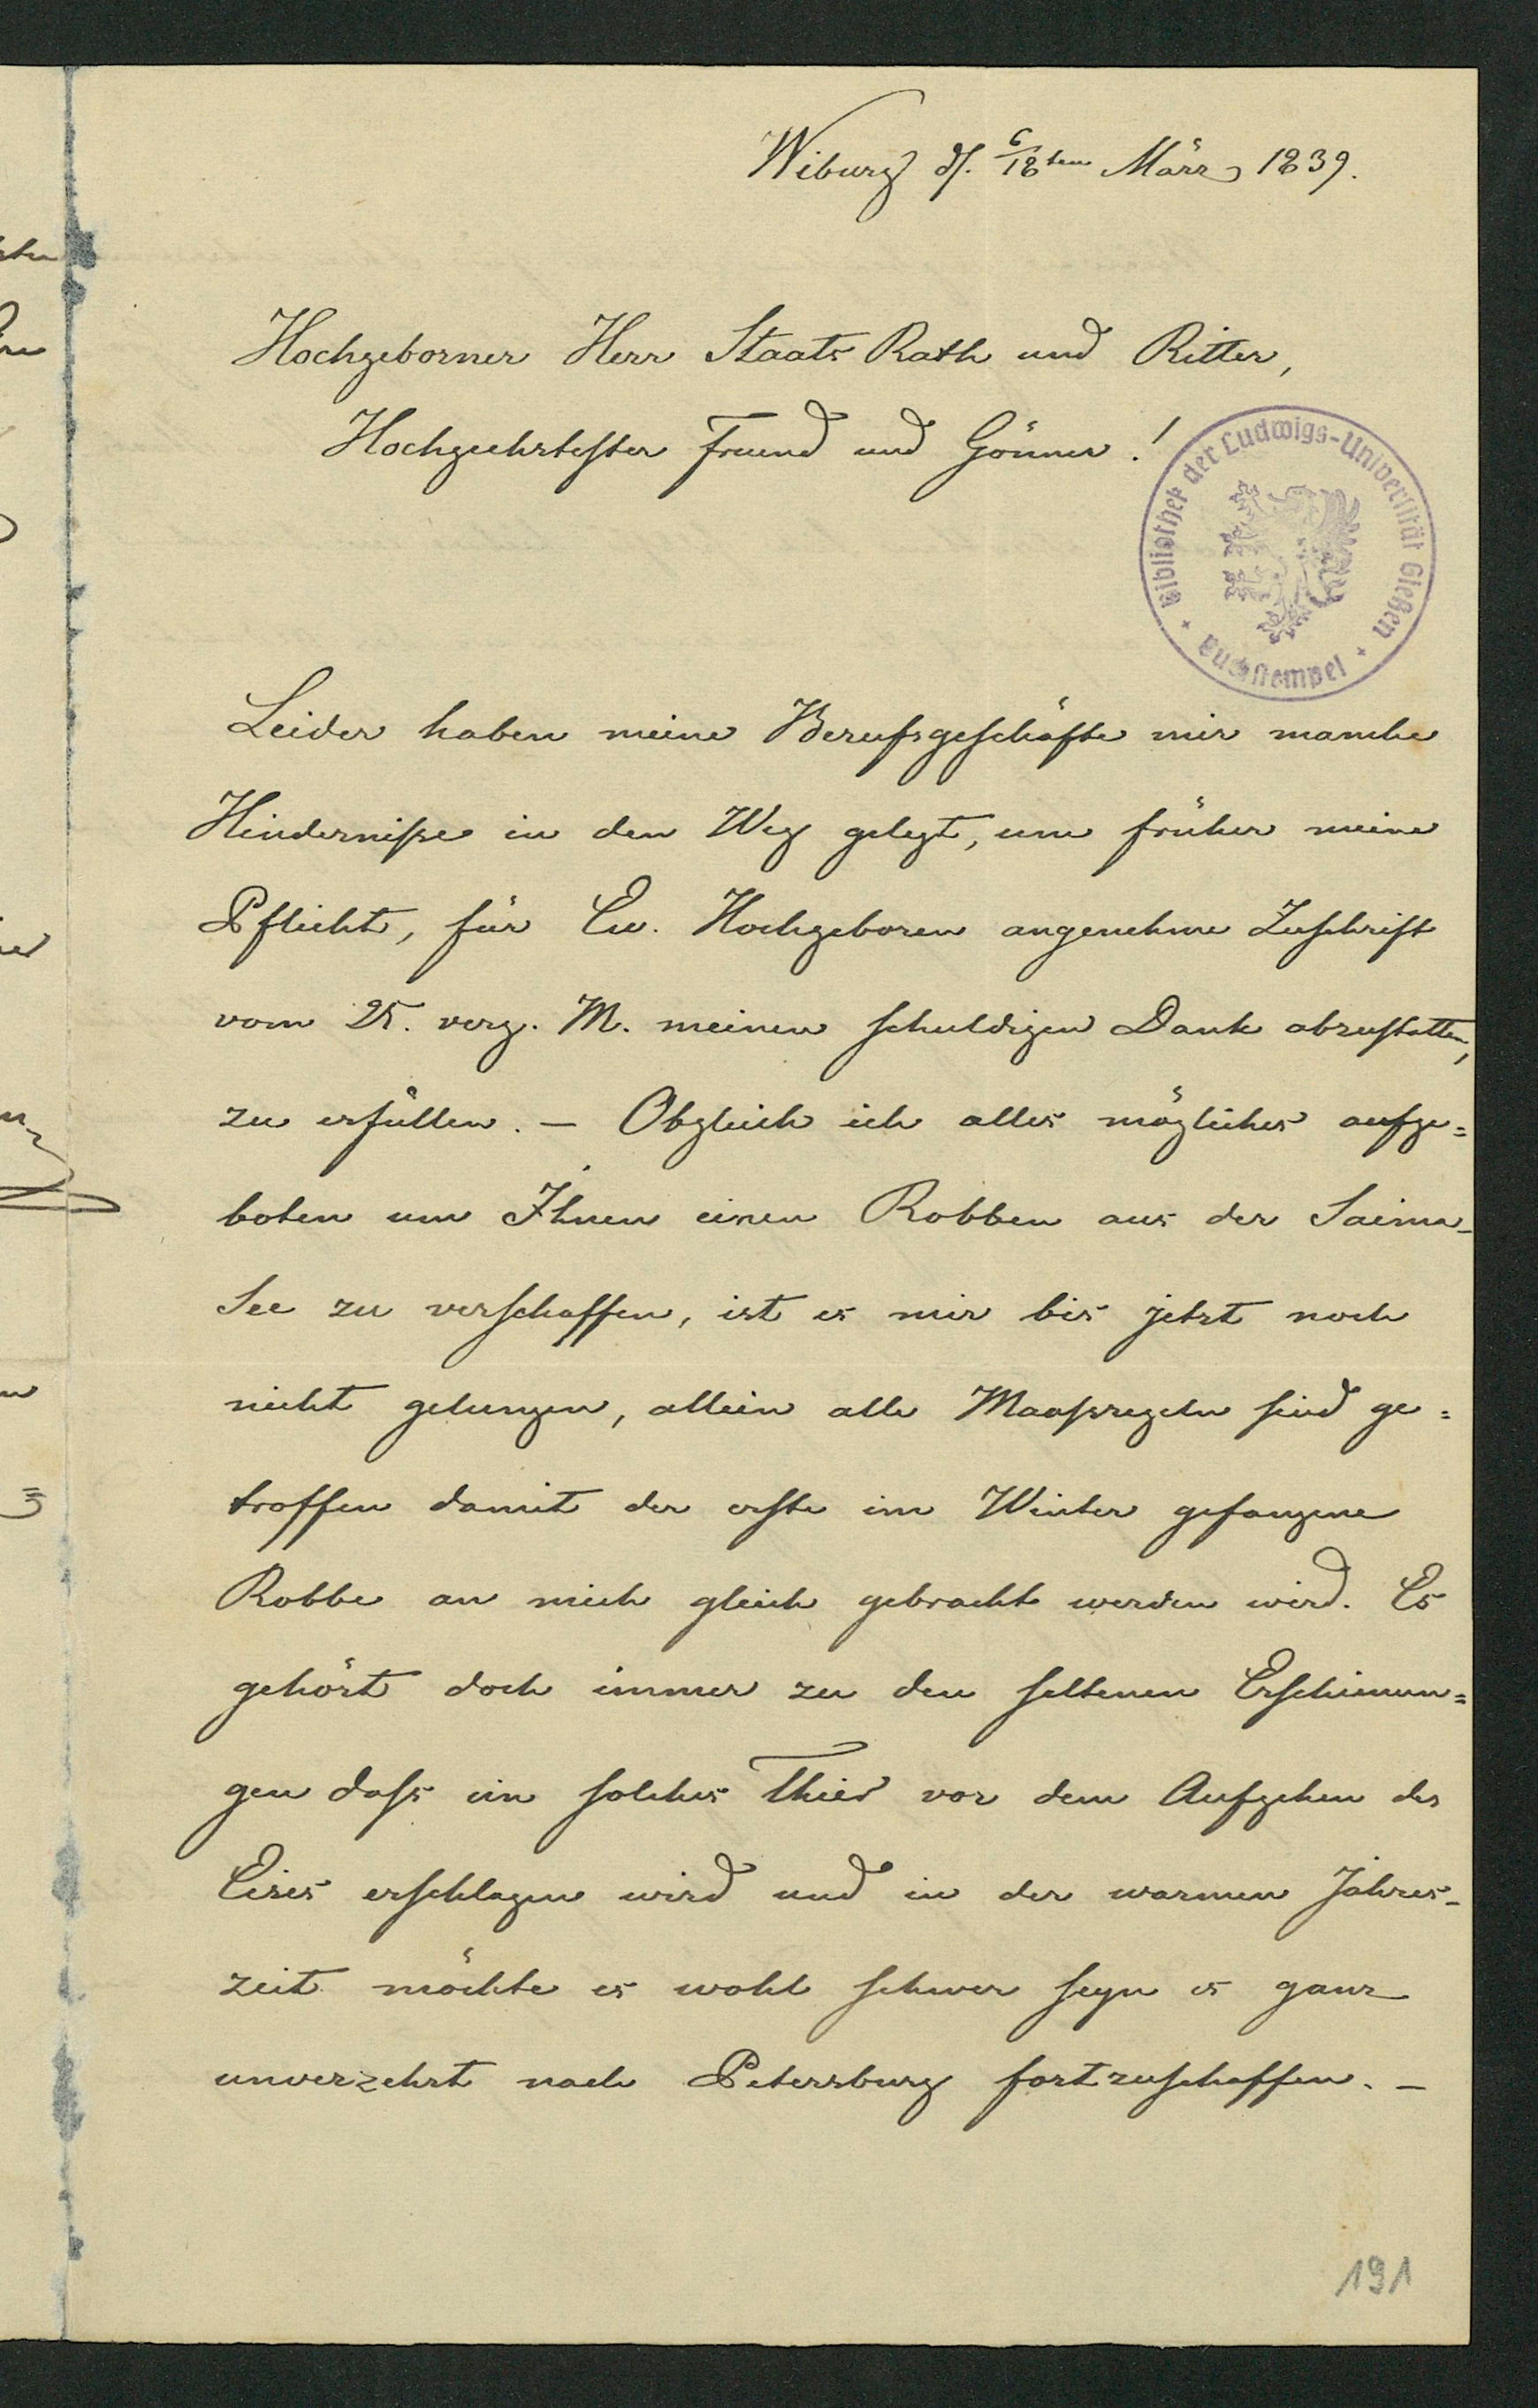 Wiburg d. 6/18ten März 1839.
Hochgeborner Herr Staats Rath und Ritter,
Hochgeehrtester Freund und Gönner!
Bibliothek der Ludwigs-Universität Gießen
Buchstempel
Leider haben meine Berufsgeschäfte mir manche
Hinderniße in den Weg gelegt, um früher meine
Pflicht, für Ew. Hochgeboren angenehme Zuschrift
vom 25. verg. M. meinen schuldigen Dank abzustatten,
zu erfüllen. – Obgleich ich alles mögliches aufge=
boten um Ihnen einen Robben aus der Saima-
See zu verschaffen, ist es mir bis jetzt noch
nicht gelungen, allein alle Maaßregeln sind ge=
troffen damit der erste im Winter gefangene
Robbe an mich gleich gebracht werden wird. Es
gehört doch immer zu den seltenen Erscheinun=
gen daß ein solches Thier vor dem Aufgehen des
Eises erschlagen wird und in der warmen Jahres-
zeit möchte es wohl schwer seyn es ganz
unverzehrt nach Petersburg fortzuschaffen. –
191